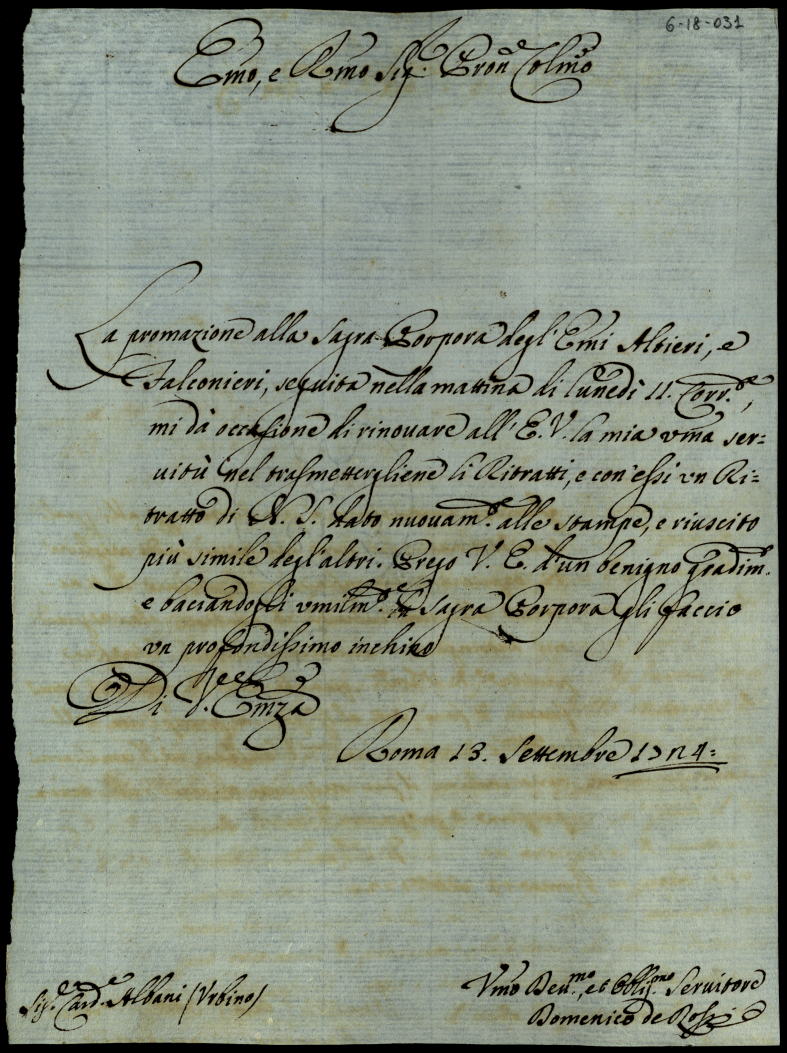 6-18-031
Emo, e Rmo Sig.re Pron Colmo
La promozione alla Sagra Porpora degl'Emi Altieri, e
Falconieri, seguita nella mattina di lunedì 11. Corr.e,
mi dà occasione di rinouare all'E. V. la mia vma ser=
uitù nel trasmettergliene li Ritratti, e con'essi vn Ri=
tratto di N. S. dato nuouam.e alle stampe, e riuscito
più simile degl'altri. Prego V. E. d'un benigno gradim.
e baciandogli vmilm.e la Sagra Porpora gli faccio
vn profondissimo inchino
Di V. Emza
Roma 13. Settembre 1724=
Sig.r Card.e Albani (Vrbino)
Vmo Deu.mo, et Obblig.mo Seruitore
Domenico de Rossi